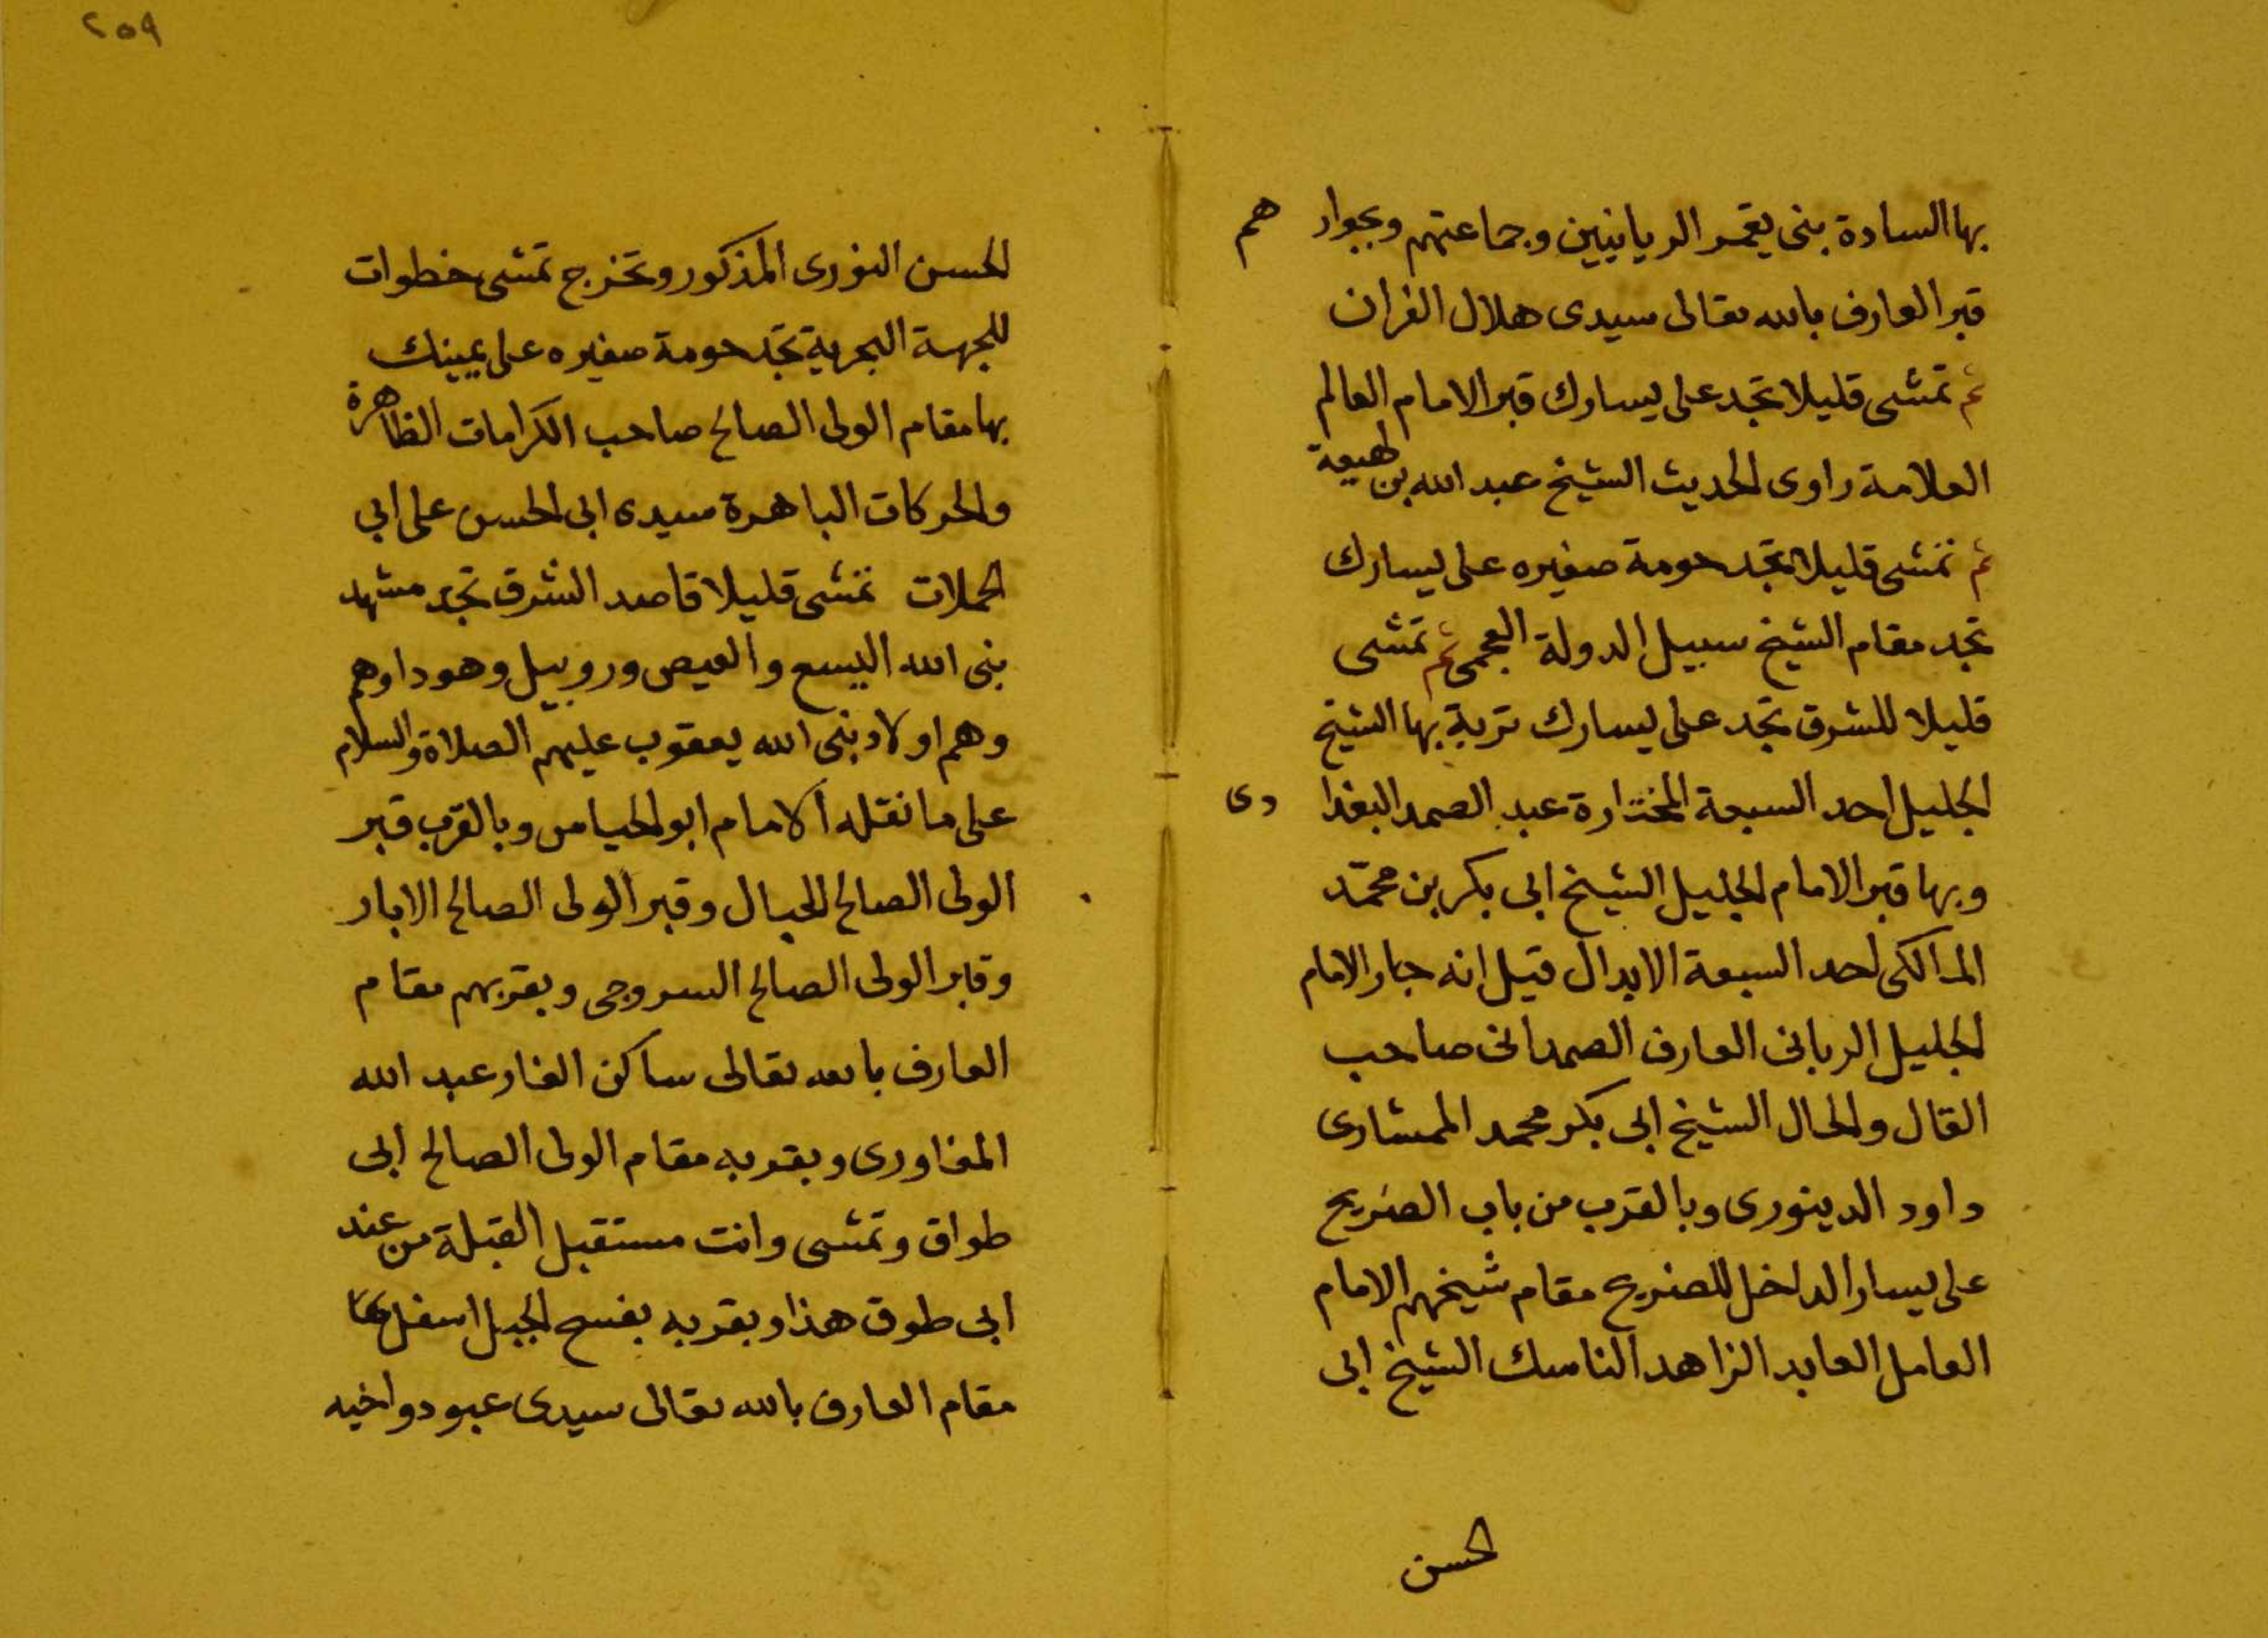 بها السادة بنى يغمر الريانيين وجماعتهم وبجوار هم
قبر العارف بالله تعالى سيدى هلال الفران
ثم تمشى قليلا تجد على يسارك قبر الامام العالم
العلامة راوى الحديث الشيخ عبد الله بن لهيعة
ثم تمشى قليلا تجد حومة صغيره على يسارك
تجد مقام الشيخ سبيل الدولة العجمى ثم تمشى
قليلا للشرق تجد على يسارك تربة بها الشيخ
الجليل احد السبعة المختارة عبد الصمد البغدا دى
وبها قبر الامام الجليل الشيخ ابى بكر بن محمد
المالكى احد السبعة الابدال قيل انه جار الامام
الجليل الربانى العارف الصمدانى صاحب
القال والحال الشيخ ابى بكر محمد الممشادى
داود الدينورى وبالقرب من باب الضريح
على يسار الداخل للضريح مقام شيخهم الامام
العامل العابد الزاهد الناسك الشيخ ابى
الحسن
٢٥٩
الحسن النورى المذكور وتخرج تمشى خطوات
للجهة البحرية تجد حومة صغيره على يمينك
بها مقام الولى الصالح صاحب الكرامات الظاهرة
والحركات الباهرة سيدى ابى الحسن على ابى
الحملات تمشى قليلا قاصد الشرق تجد مشهد
نبى الله اليسع والعيص وروبيل وهودا وهم
وهم اولاد نبى الله يعقوب عليهم الصلاة والسلام
على ما نقله الامام ابو الحياس وبالقرب قبر
الولى الصالح الحبال وقبر الولى الصالح الابار
وقابر الولى الصالح السروجى وبقربهم مقام
العارف بالله تعالى ساكن الغار عبد الله
المغاورى وبقربه مقام الولى الصالح ابى
طواق وتمشى وانت مستقبل القبلة من عند
ابى طوق هذا وبقربه بفسح الجبل اسفل
مقام العارف بالله تعالى سيدى عبود واخيه